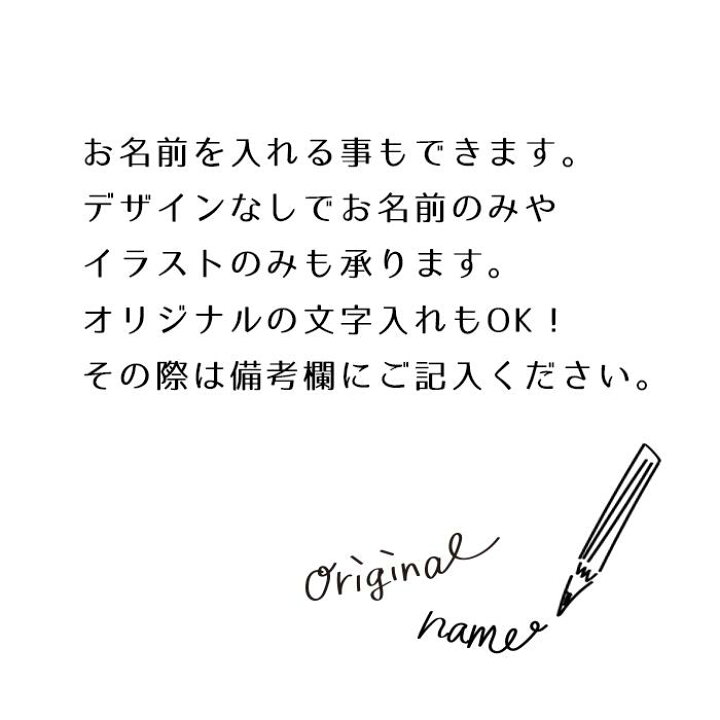 お名前を入れる事もできます。
デザインなしでお名前のみや
イラストのみも承ります。
オリジナルの文字入れもOK！
その際は備考欄にご記入ください。
original
name